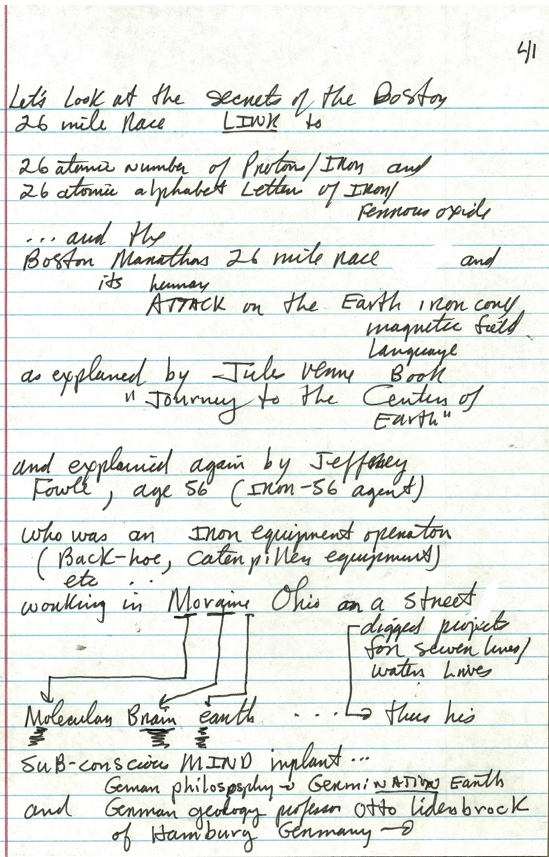 4/1
Let's look at the secrets of the Boston
26 mile Race LINK to
26 atomic number of Protons/Iron and
26 atomic alphabet Letters of Iron/
Ferrous oxide
... and the
Boston Marathas 26 mile race and
its human
ATTACK on the Earth iron core/
magnetic field
Language
as explaned by Jules Verne Book
"Journey to the Center of
Earth"
and explained again by Jeffrey
Fowle, age 56 (Iron-56 agent)
who was an Iron equipment operator
(Back-hoe, Caterpiller equipment)
etc ...
working in Moraine Ohio on a street
digged projects
for sewer lines/
water lines
Molecular Brain earth .... thus his
SUB-conscious MIND implant ...
German philospsphy → GermiNATION Earth
and German geology professor Otto lidenbrock
of Hamburg Germany →